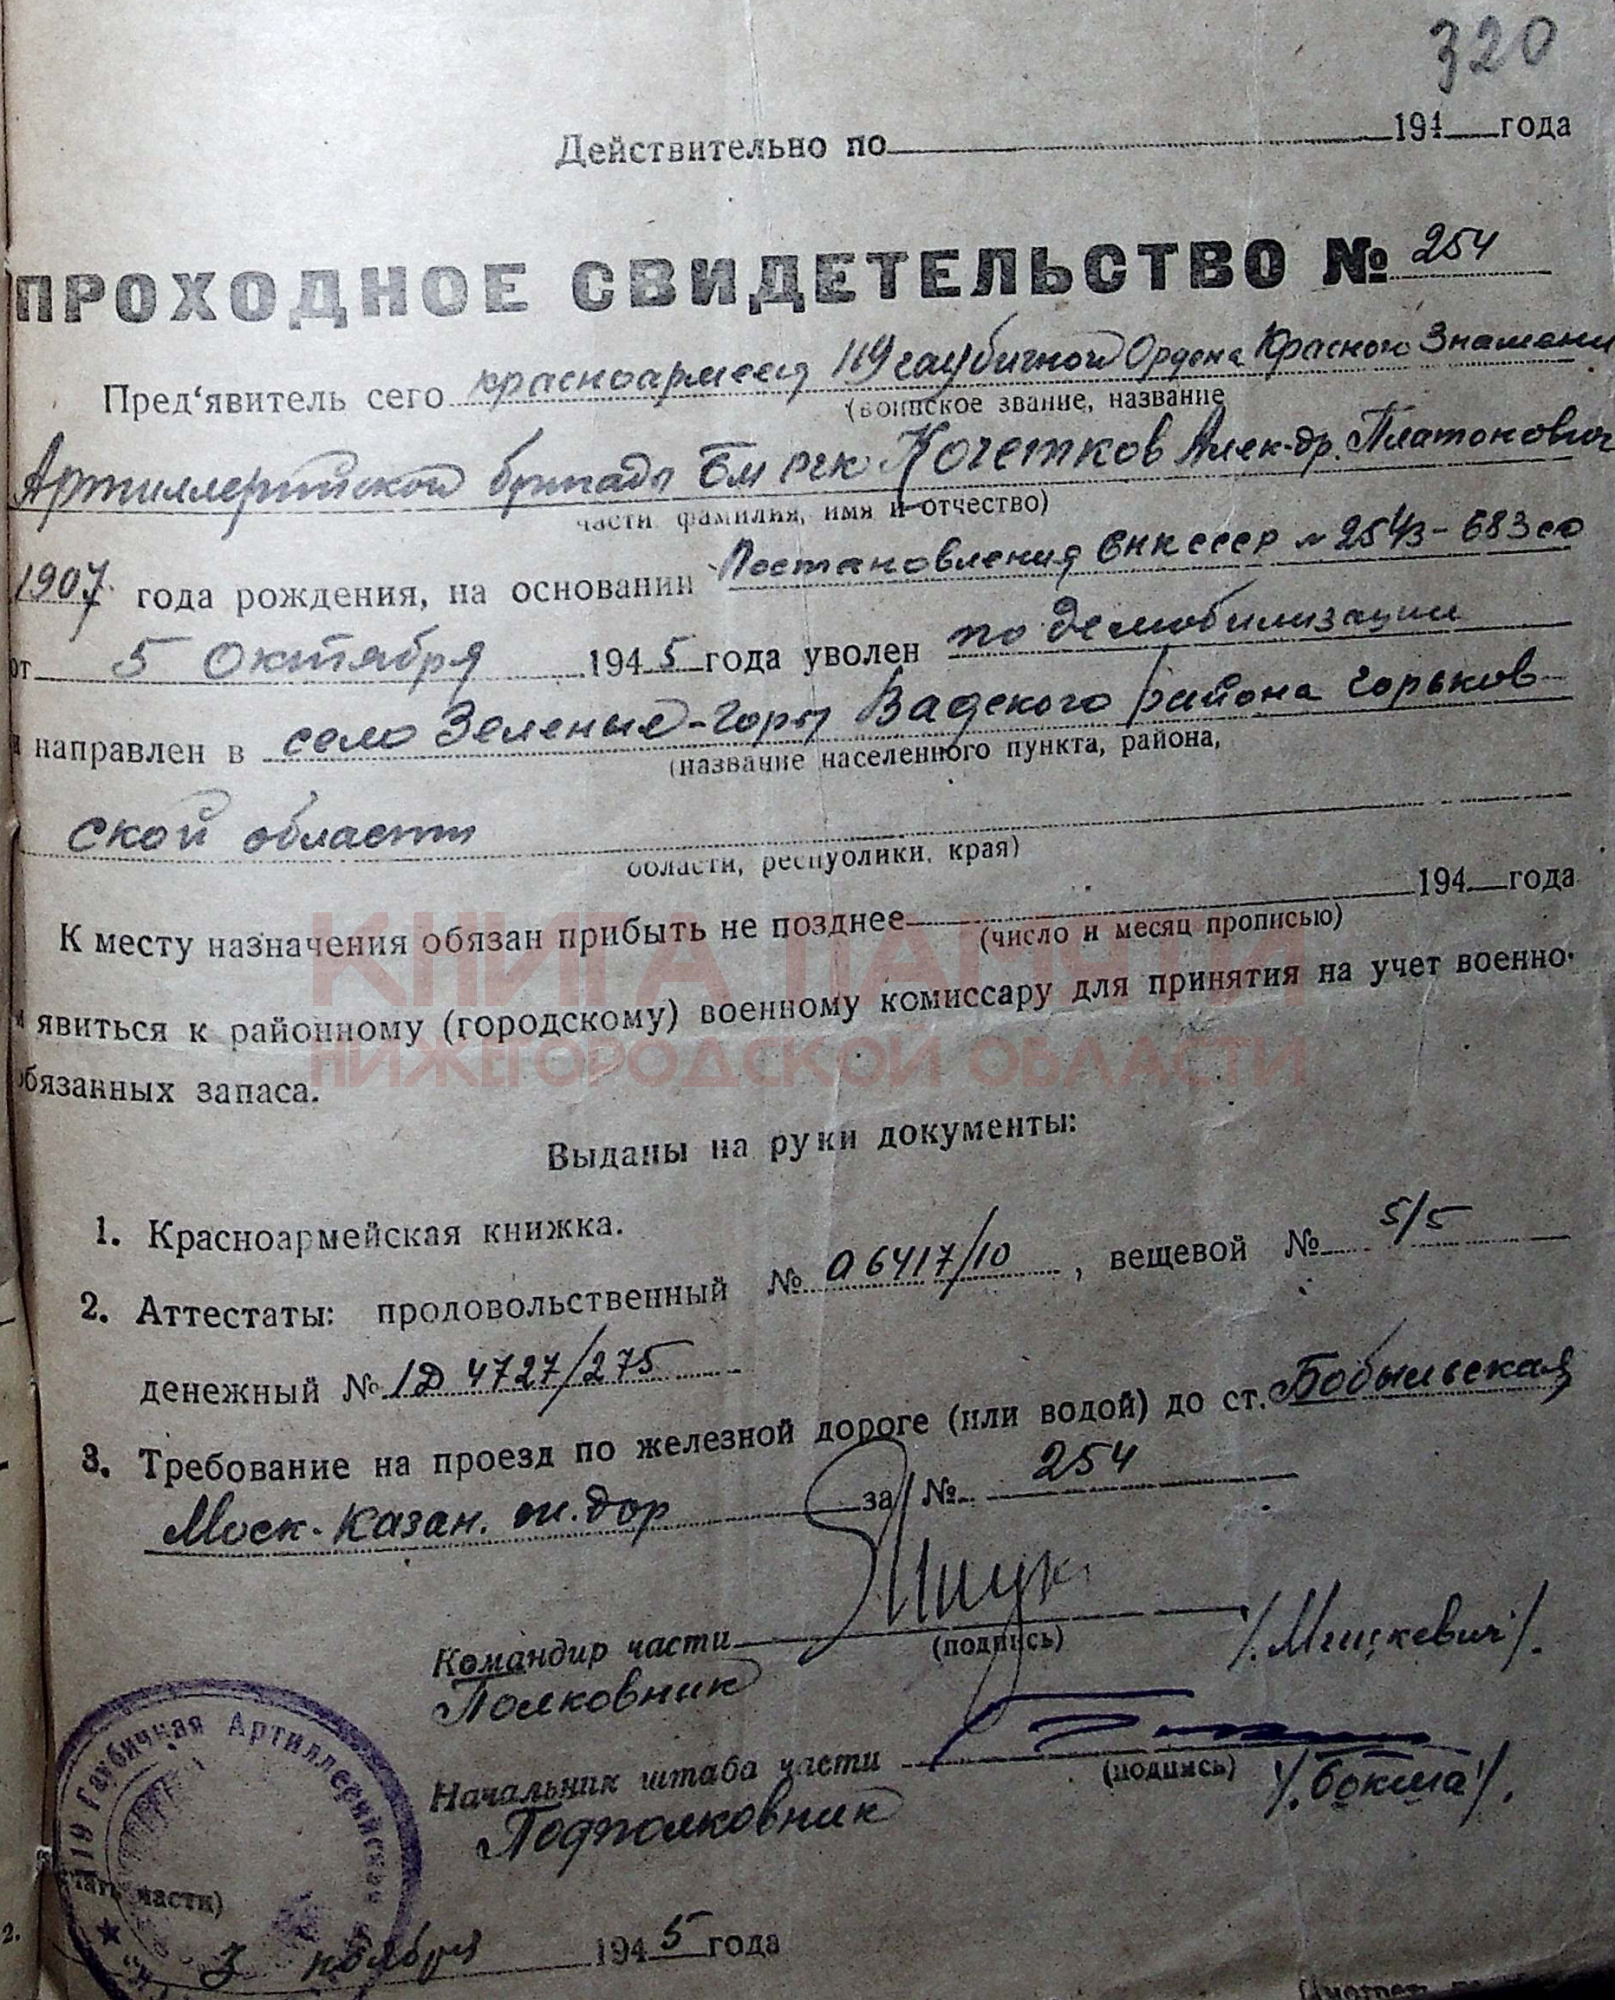 320
Действительно по 194 года
ПРОХОДНОЕ СВИДЕТЕЛЬСТВО № 254
Пред'явитель сего красноармеец 119 гаубичной Ордена Красного Знамени
(воинское звание, название
Артиллерийской бригады БМ РГК Кочетков Алек-др. Платонович
части фамилия, имя и отчество)
1907 года рождения, на основании Постановления СНК СССР № 2543-683 со
от 5 октября 1945 года уволен по демобилизации
и направлен в село Зеленые-Горы Вадского района Горьков-
(название населенного пункта, района,
ской области
области, республики, края)
К месту назначения обязан прибыть не позднее 194 года
(число и месяц прописью)
и явиться к районному (городскому) военному комиссару для принятия на учет военно-
обязанных запаса.
КНИГА ПАМЯТИ
НИЖЕГОРОДСКОЙ ОБЛАСТИ
Выданы на руки документы:
1. Красноармейская книжка.
2. Аттестаты: продовольственный № 06417/10, вещевой № 5/5
денежный № 1Д 4727/275
3. Требование на проезд по железной дороге (или водой) до ст. Бобыльская
Моск-Казан. ж.дор за № 254
Командир части
(подпись)
/Мицкевич/.
Полковник
Начальник штаба части
(подпись)
/Бокша/.
Подполковник
119 Гаубичная Артиллерийская
части)
3 ноября 1945 года
2.